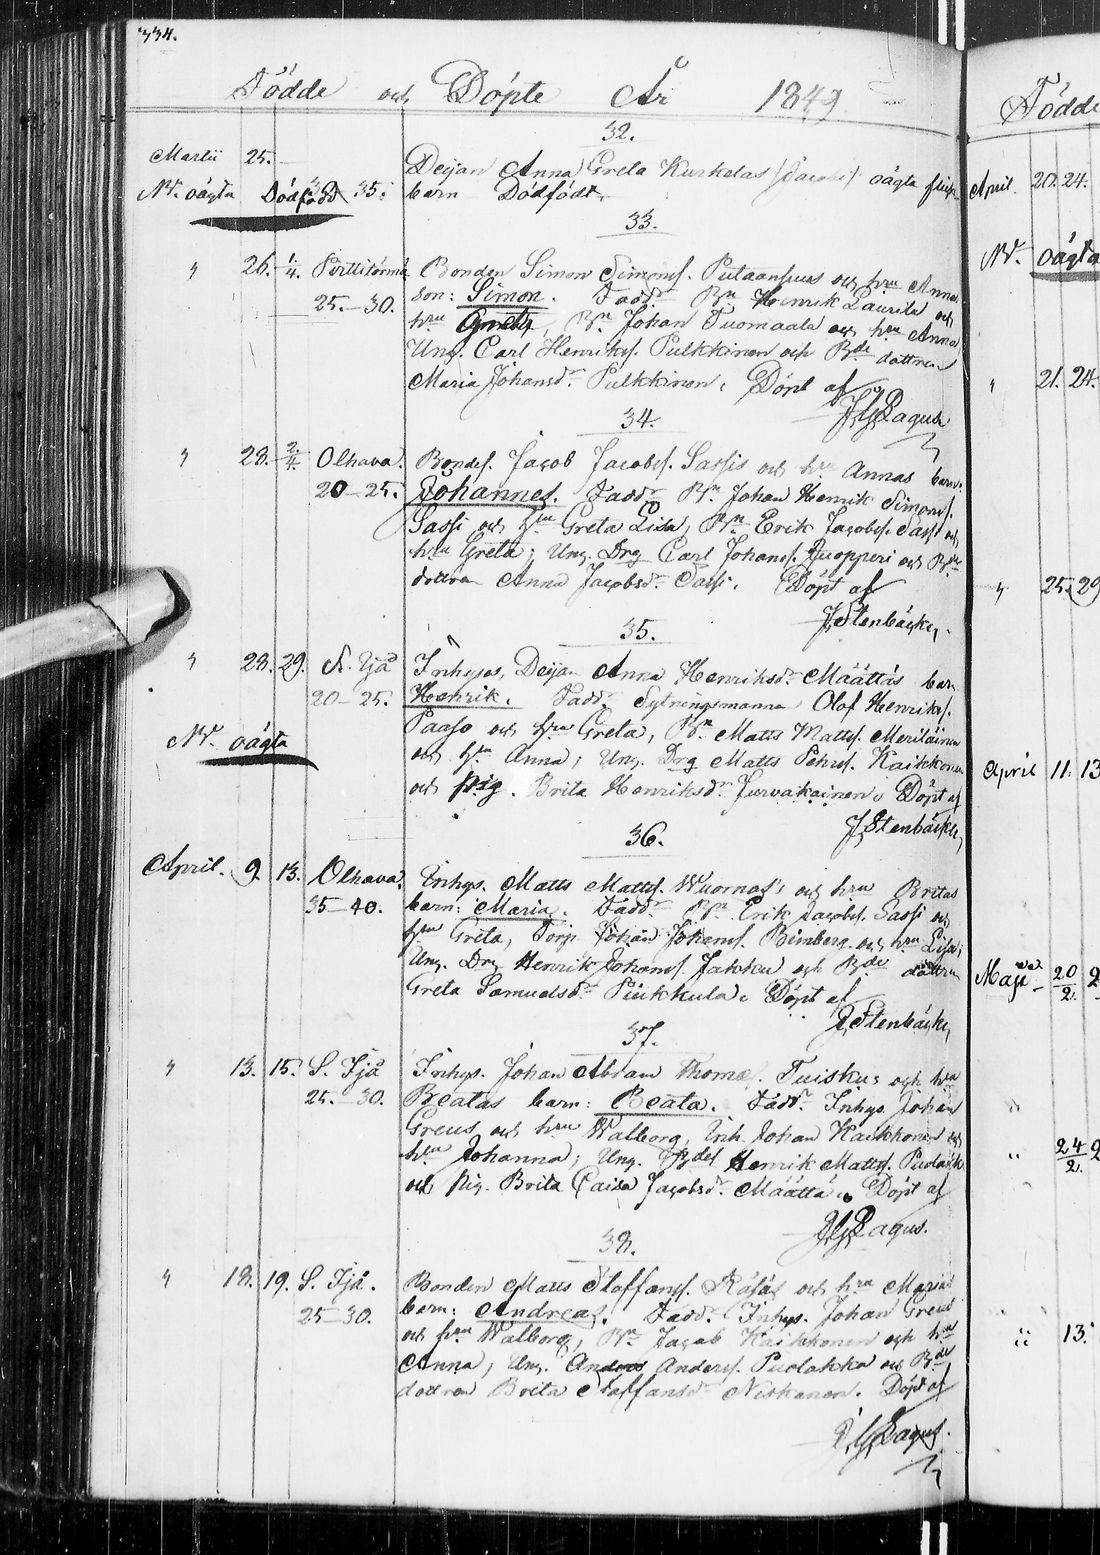 334.
Födde och Döpte År 1849
32.
Martii 25. Deijan Anna Greta Kurkelas (Jacobs) oägta flick
N.º oägta Dödfödt 35. barn Dödfödt.
33.
" 26. 1/4. Pirttitörmä Bonden Simon Simonss. Putaansuus och hru Annas
25.-30. son: Simon. Fadd.r Bn Henrik Laurila och
hru Greta, Bn Johan Tuomaala och hru Anna
Ung. Carl Henrikss. Pulkkinen och Bde dottren
Maria Johansd.r Pulkkinen. Döpt af
J.G. Pagus
34.
" 28. 2/4. Olhava. Bondes. Jacob Jacobss. Sassis och hru Annas barn
20-25. Johannes. Fadd.r Bn Johan Henrik Simonss.
Sassi och hru Greta Lisa, Bn Erik Jacobss. Sassi och
hru Greta; Ung. Drg Carl Johanss. Kuopperi och Bde
dottren Anna Jacobsd.r Sassi. Döpt af
J. Stenbäck,
35.
" 28. 29. N. Ijå Inhyses, Deijan Anna Henriksd.r Määttäs barn
20-25. Henrik. Fadd.r Sytningsmannen Olof Henrikss.
Paaso och hru Greta, Bn Matts Mattss. Meriläinen
N.º oägta och hru Anna; Ung. Drg Matts Pehrss. Kaikkonen
och pig. Brita Henriksd.r Jurvakainen. Döpt af
J. Stenbäck,
36.
April. 9. 13. Olhava. Inhys. Matts Mattss. Wuornos's och hru Britas
35-40. barn: Maria. Fadd.r Bn Erik Jacobss. Sassi och
hru Greta, Torp. Johan Johanss. Bimberg och hru Lisa;
Ung. Drg Henrik Johanss. Jakku och Bde dottren
Greta Samuelsd.r Piukkula. Döpt af
J. Stenbäck,
37.
" 13. 15. S. Ijå Inhys. Johan Abram Thomæ. Tuiskus och hru
25.-30. Beatas barn: Beata. Fadd.r Inhys Johan
Greus och hru Walborg, Inh. Johan Kaikkonen och
hru Johanna; Ung. Bdes Henrik Mattss. Puolakk
och pig. Brita Caisa Jacobsd.r Määttä. Döpt af
J.G. Pagus.
38.
" 18. 19. S. Ijå. Bonden Matts Staffanss. Räsäs och hru Marias
25-30. barn: Andreas. Fadd.r Inhys. Johan Greus
och hru Walborg, Bn Jacob Kaikkonen och hru
Anna; Ung. Anders Anderss. Puolakka och Bdes
dottren Brita Staffansd.r Niskanen. Döpt af
J.G. Pagus.
Födde
April. 20. 24.
N.º oägta
" 21. 24.
" 25. 29
April 11. 13
Maji 20/2.
" 24/2.
" 13.